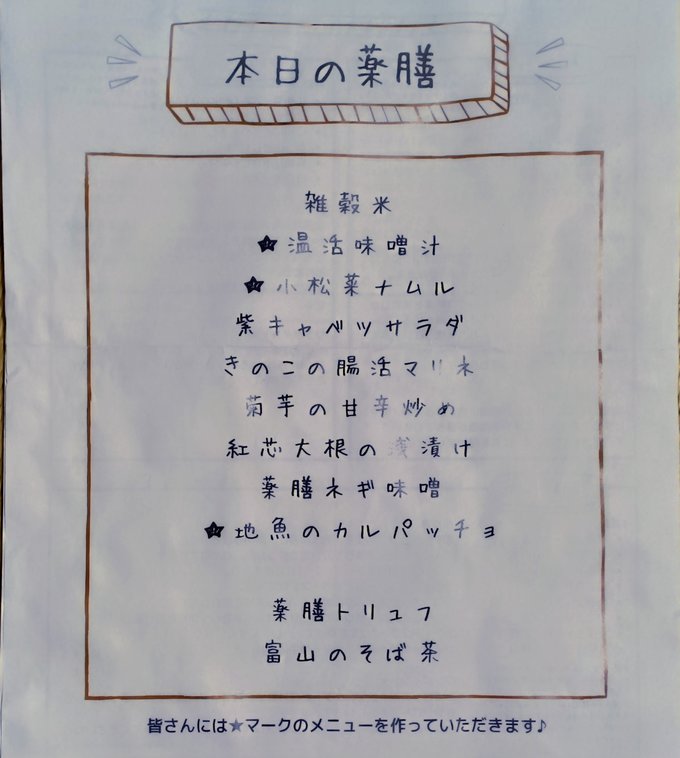 本日の薬膳
雑穀米
★温活味噌汁
★小松菜ナムル
紫キャベツサラダ
きのこの腸活マリネ
菊芋の甘辛炒め
紅芯大根の浅漬け
薬膳ネギ味噌
★地魚のカルパッチョ
薬膳トリュフ
富山のそば茶
皆さんには★マークのメニューを作っていただきます♪